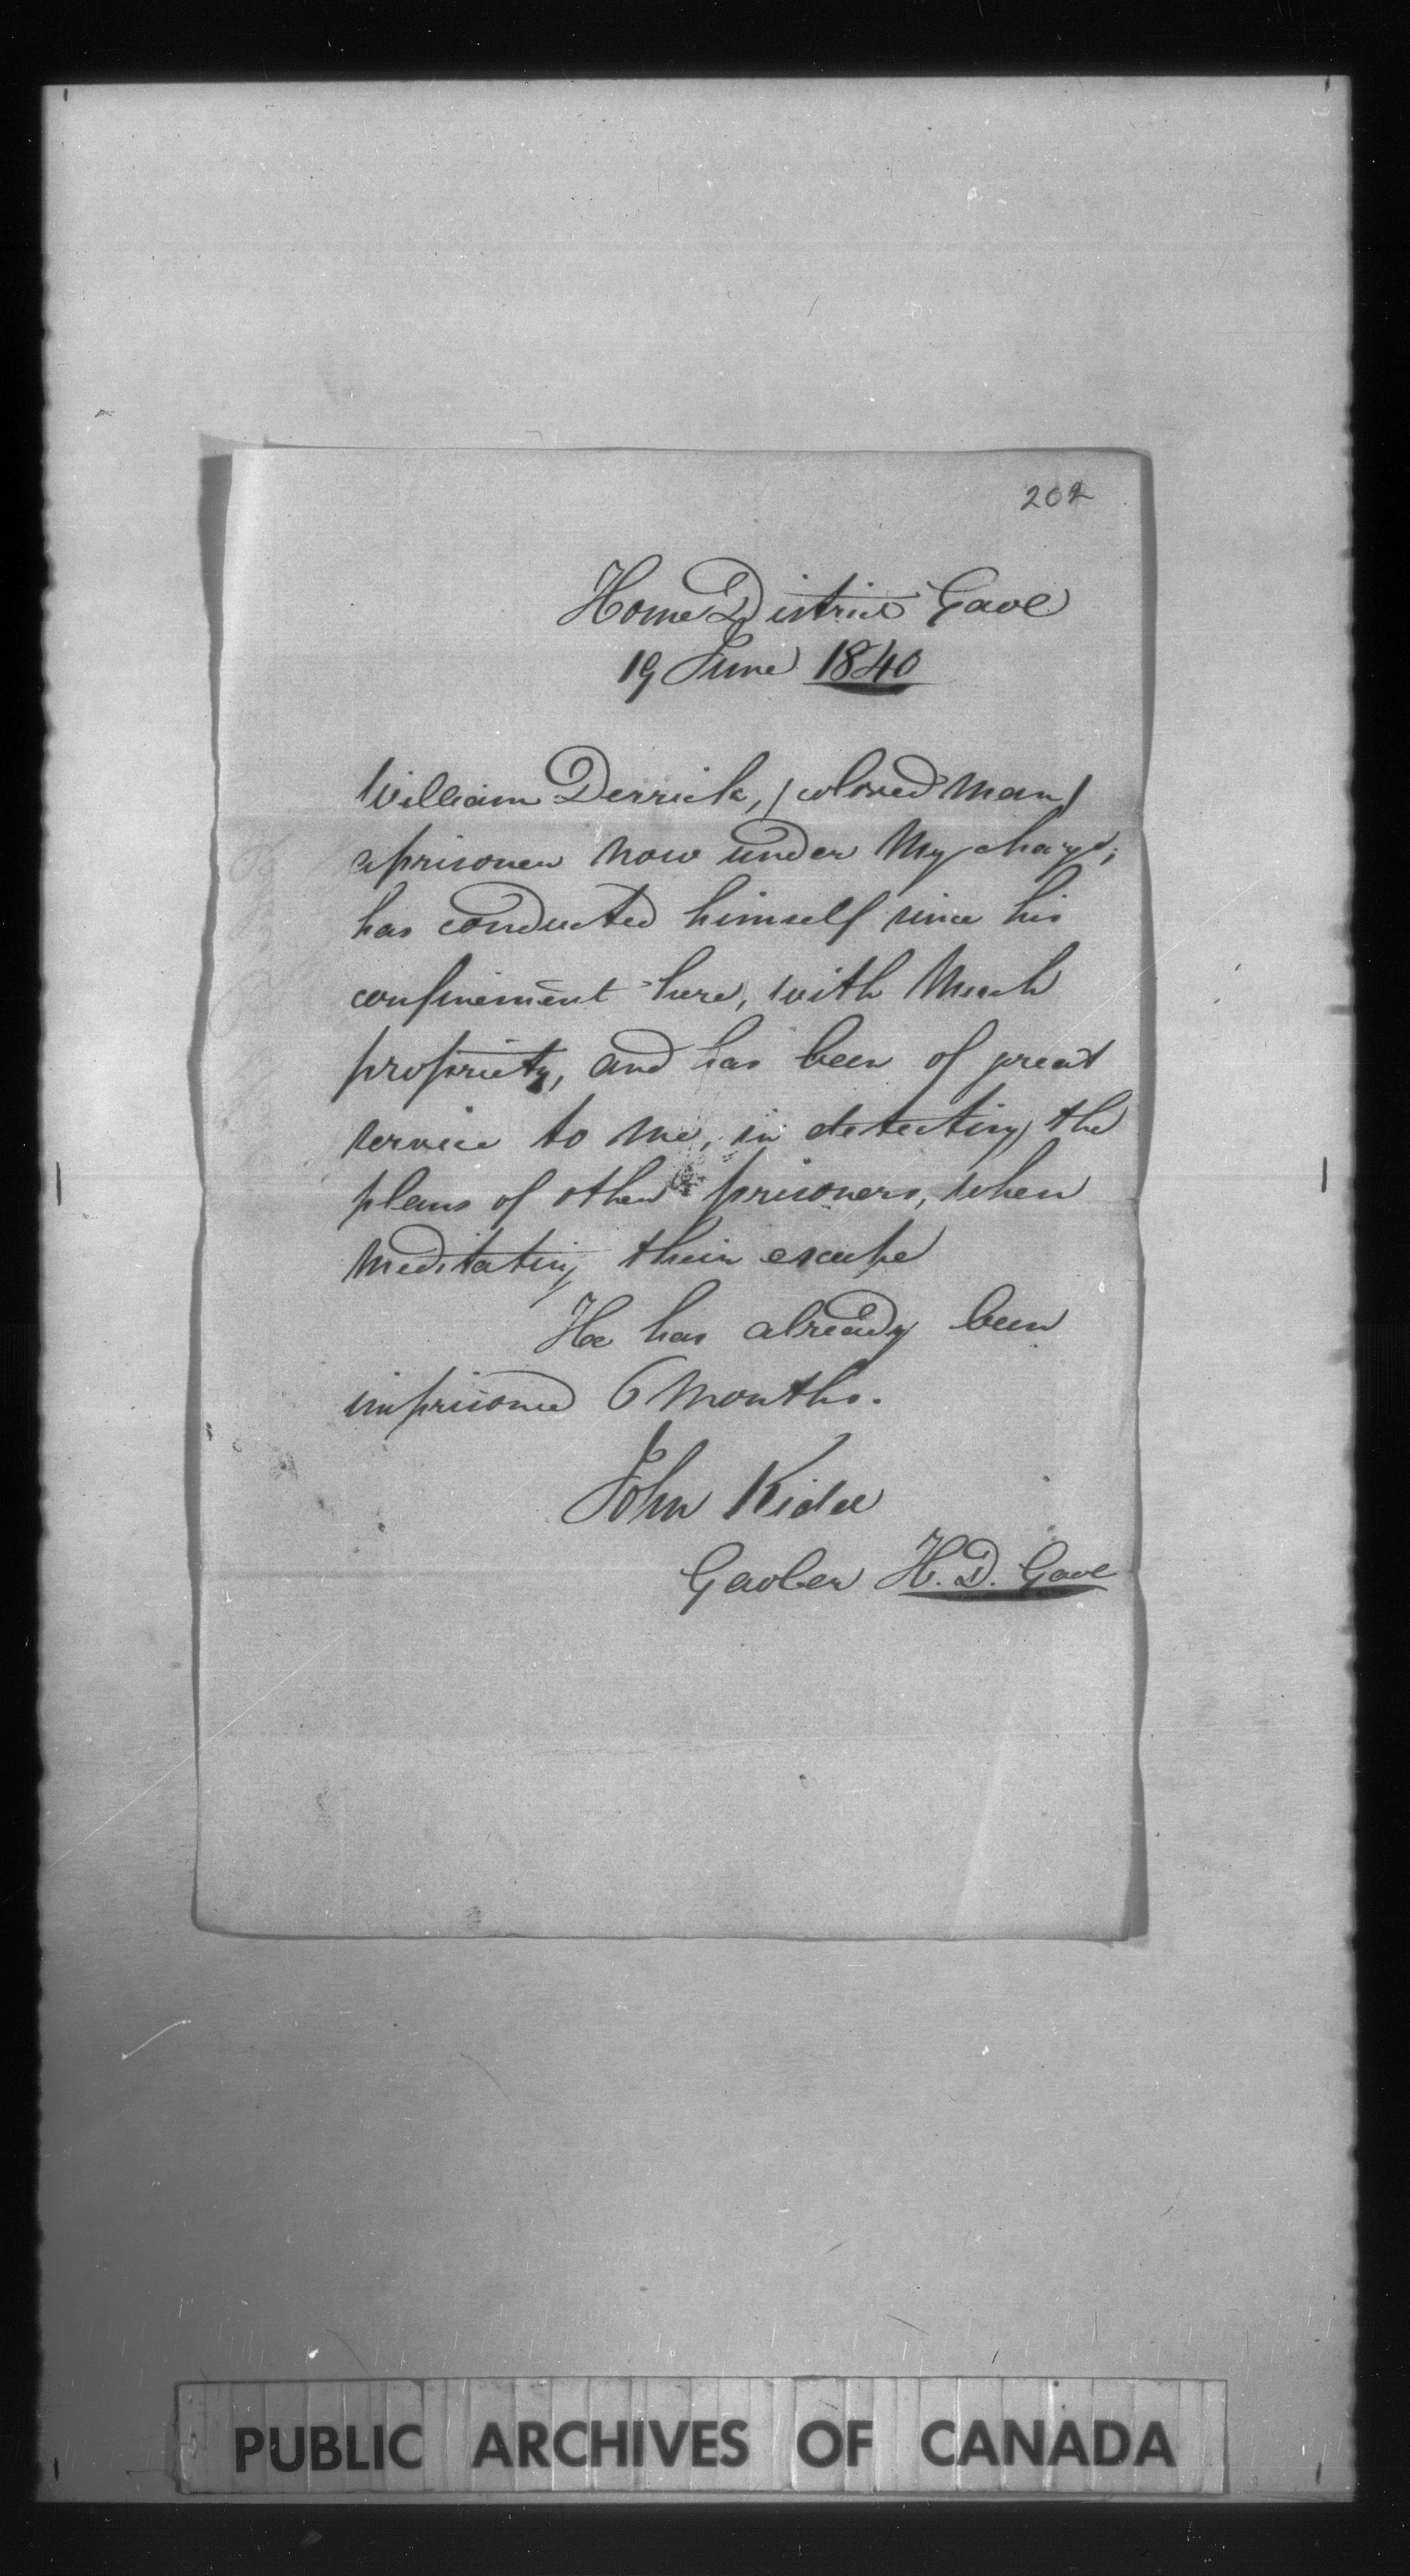 202
Home District Gaol
19 June 1840
William Derrick, (colored man)
a prisoner now under my charge,
has conducted himself since his
confinement here, with much
propriety, and has been of great
service to me, in detecting the
plans of other prisoners, when
meditating their escape
He has already been
imprisoned 6 months.
John Kidd
Gaoler H. D. Gaol
PUBLIC ARCHIVES OF CANADA